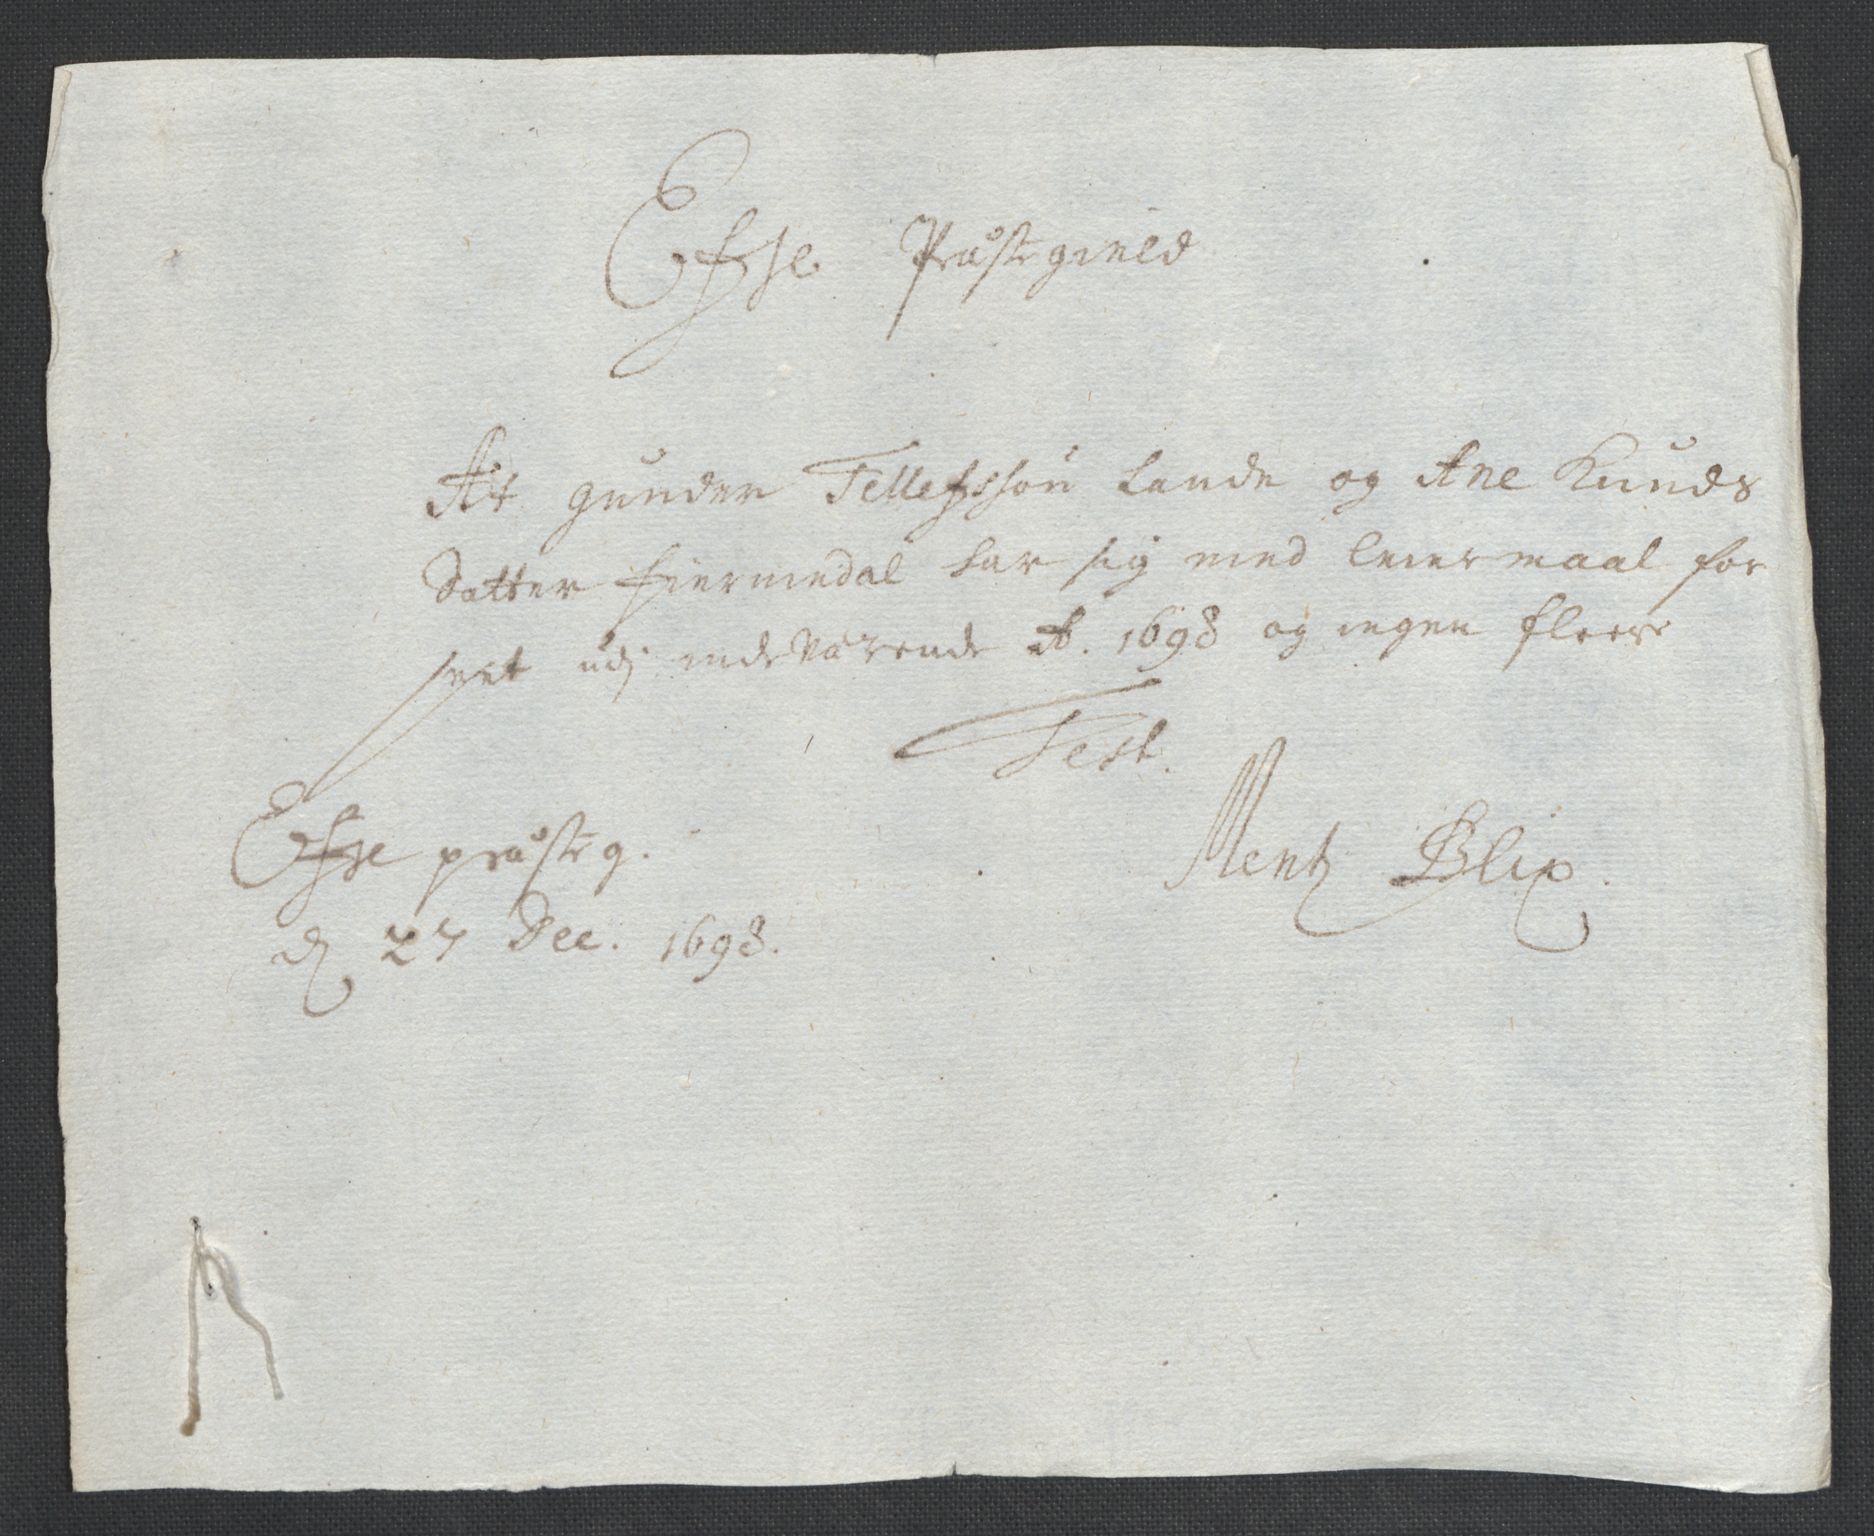 Efsse Præstegield
At gunder Tellefssøn Lande og Ane Knuds
Datter fiermedal har sig med leiermaal for
seet udj indeværende A. 1698 og ingen fleere
Test.
Mentz Blix.
Efsse præsteg.
d 27 Dec. 1698.